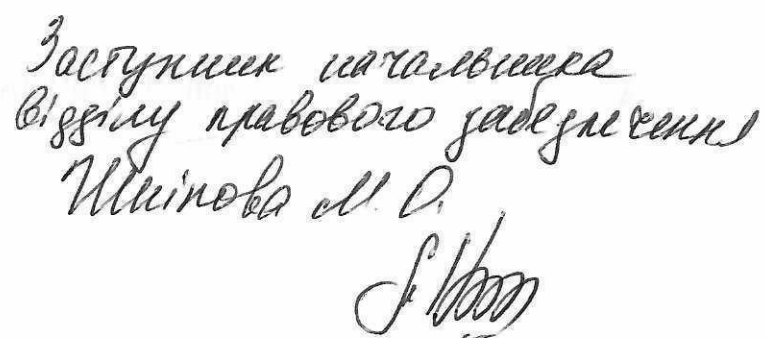 Заступник начальника
відділу правового забезпечення
М. О.